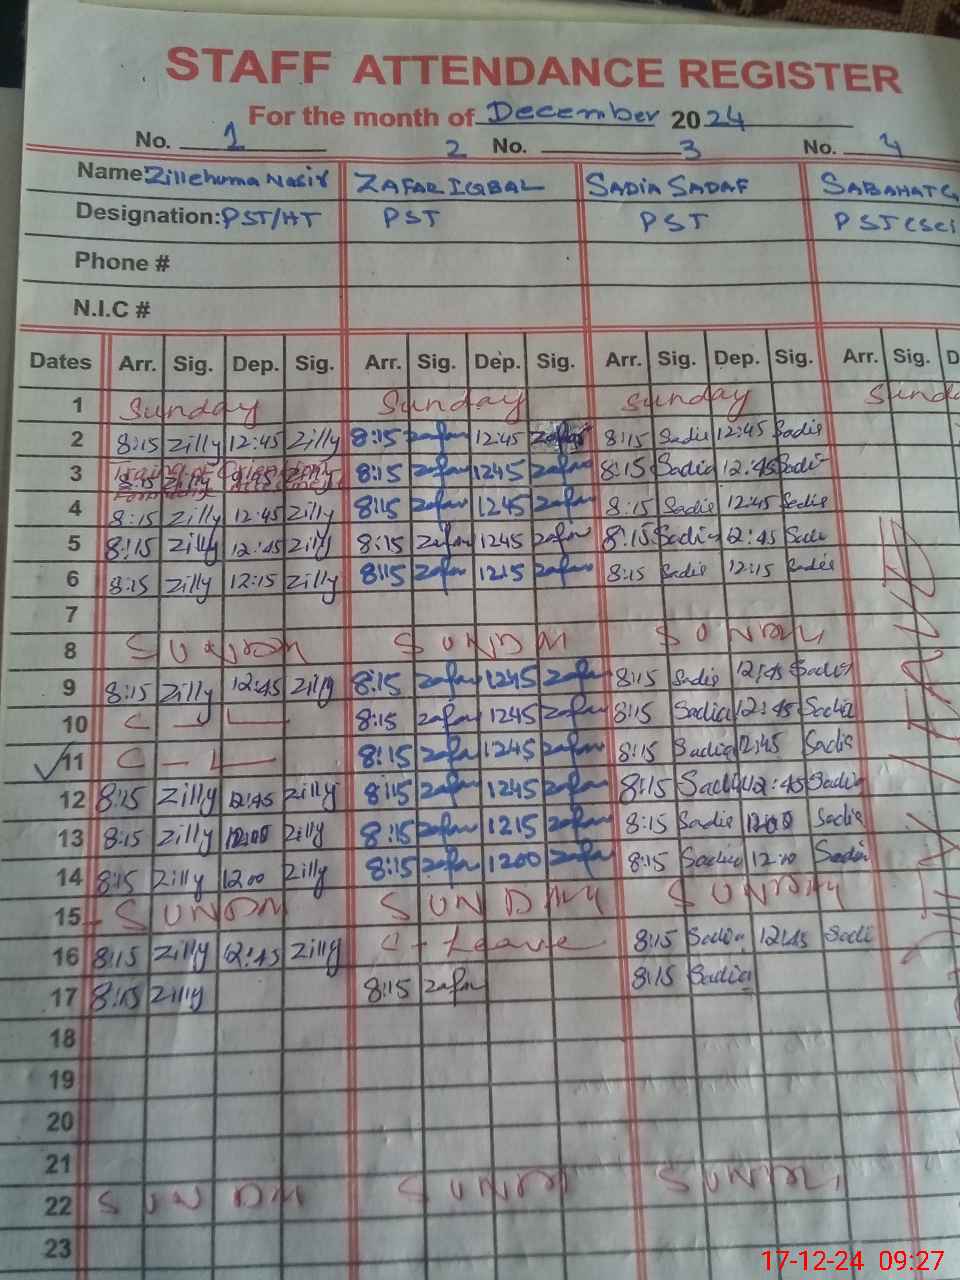 STAFF ATTENDANCE REGISTER
For the month of December 2024
No. 1 2 No. 3 No. 4
Name: Zillehuma Nasir ZAFAR IQBAL SADIA SADAF SABAHAT
Designation: PST/HT PST PST PST
Phone #
N.I.C #
Dates Arr. Sig. Dep. Sig. Arr. Sig. Dep. Sig. Arr. Sig. Dep. Sig. Arr. Sig. D
1 Sunday Sunday Sunday Sund
2 8:15 Zilly 12:45 Zilly 8:15 zafar 12:45 zafar 8:15 Sadie 12:45 Sadie
3 8:15 zafar 1245 zafar 8:15 Sadia 12:45 Sadi
4 8:15 Zilly 12:45 Zilly 8:15 zafar 1245 zafar 8:15 Sadie 12:45 Sadie
5 8:15 Zilly 12:45 Zilly 8:15 zafar 1245 zafar 8:15 Sadia 12:45 Sadi
6 8:15 Zilly 12:15 Zilly 8:15 zafar 1215 zafar 8:15 Sadie 12:15 Sadie
7
8 SUNDAY SUNDAY SUNDAY
9 8:15 Zilly 12:45 Zilly 8:15 zafar 1245 zafar 8:15 Sadie 12:45 Sadia
10 C - L 8:15 zafar 1245 zafar 8:15 Sadia 12:45 Sadia
11 C - L 8:15 zafar 1245 zafar 8:15 Sadia 12:45 Sadie
12 8:15 Zilly 12:45 Zilly 8:15 zafar 1245 zafar 8:15 Sadia 12:45 Sadia
13 8:15 Zilly 1200 Zilly 8:15 zafar 1215 zafar 8:15 Sadie 1200 Sadie
14 8:15 Zilly 1200 Zilly 8:15 zafar 1200 zafar 8:15 Sadia 12:00 Sadia
15 SUNDAY SUNDAY SUNDAY
16 8:15 Zilly 12:45 Zilly C - Leave 8:15 Sadia 12:45 Sadi
17 8:15 Zilly 8:15 zafar 8:15 Sadia
18
19
20
21
22 SUNDAY SUNDAY SUNDAY
23
17-12-24 09:27